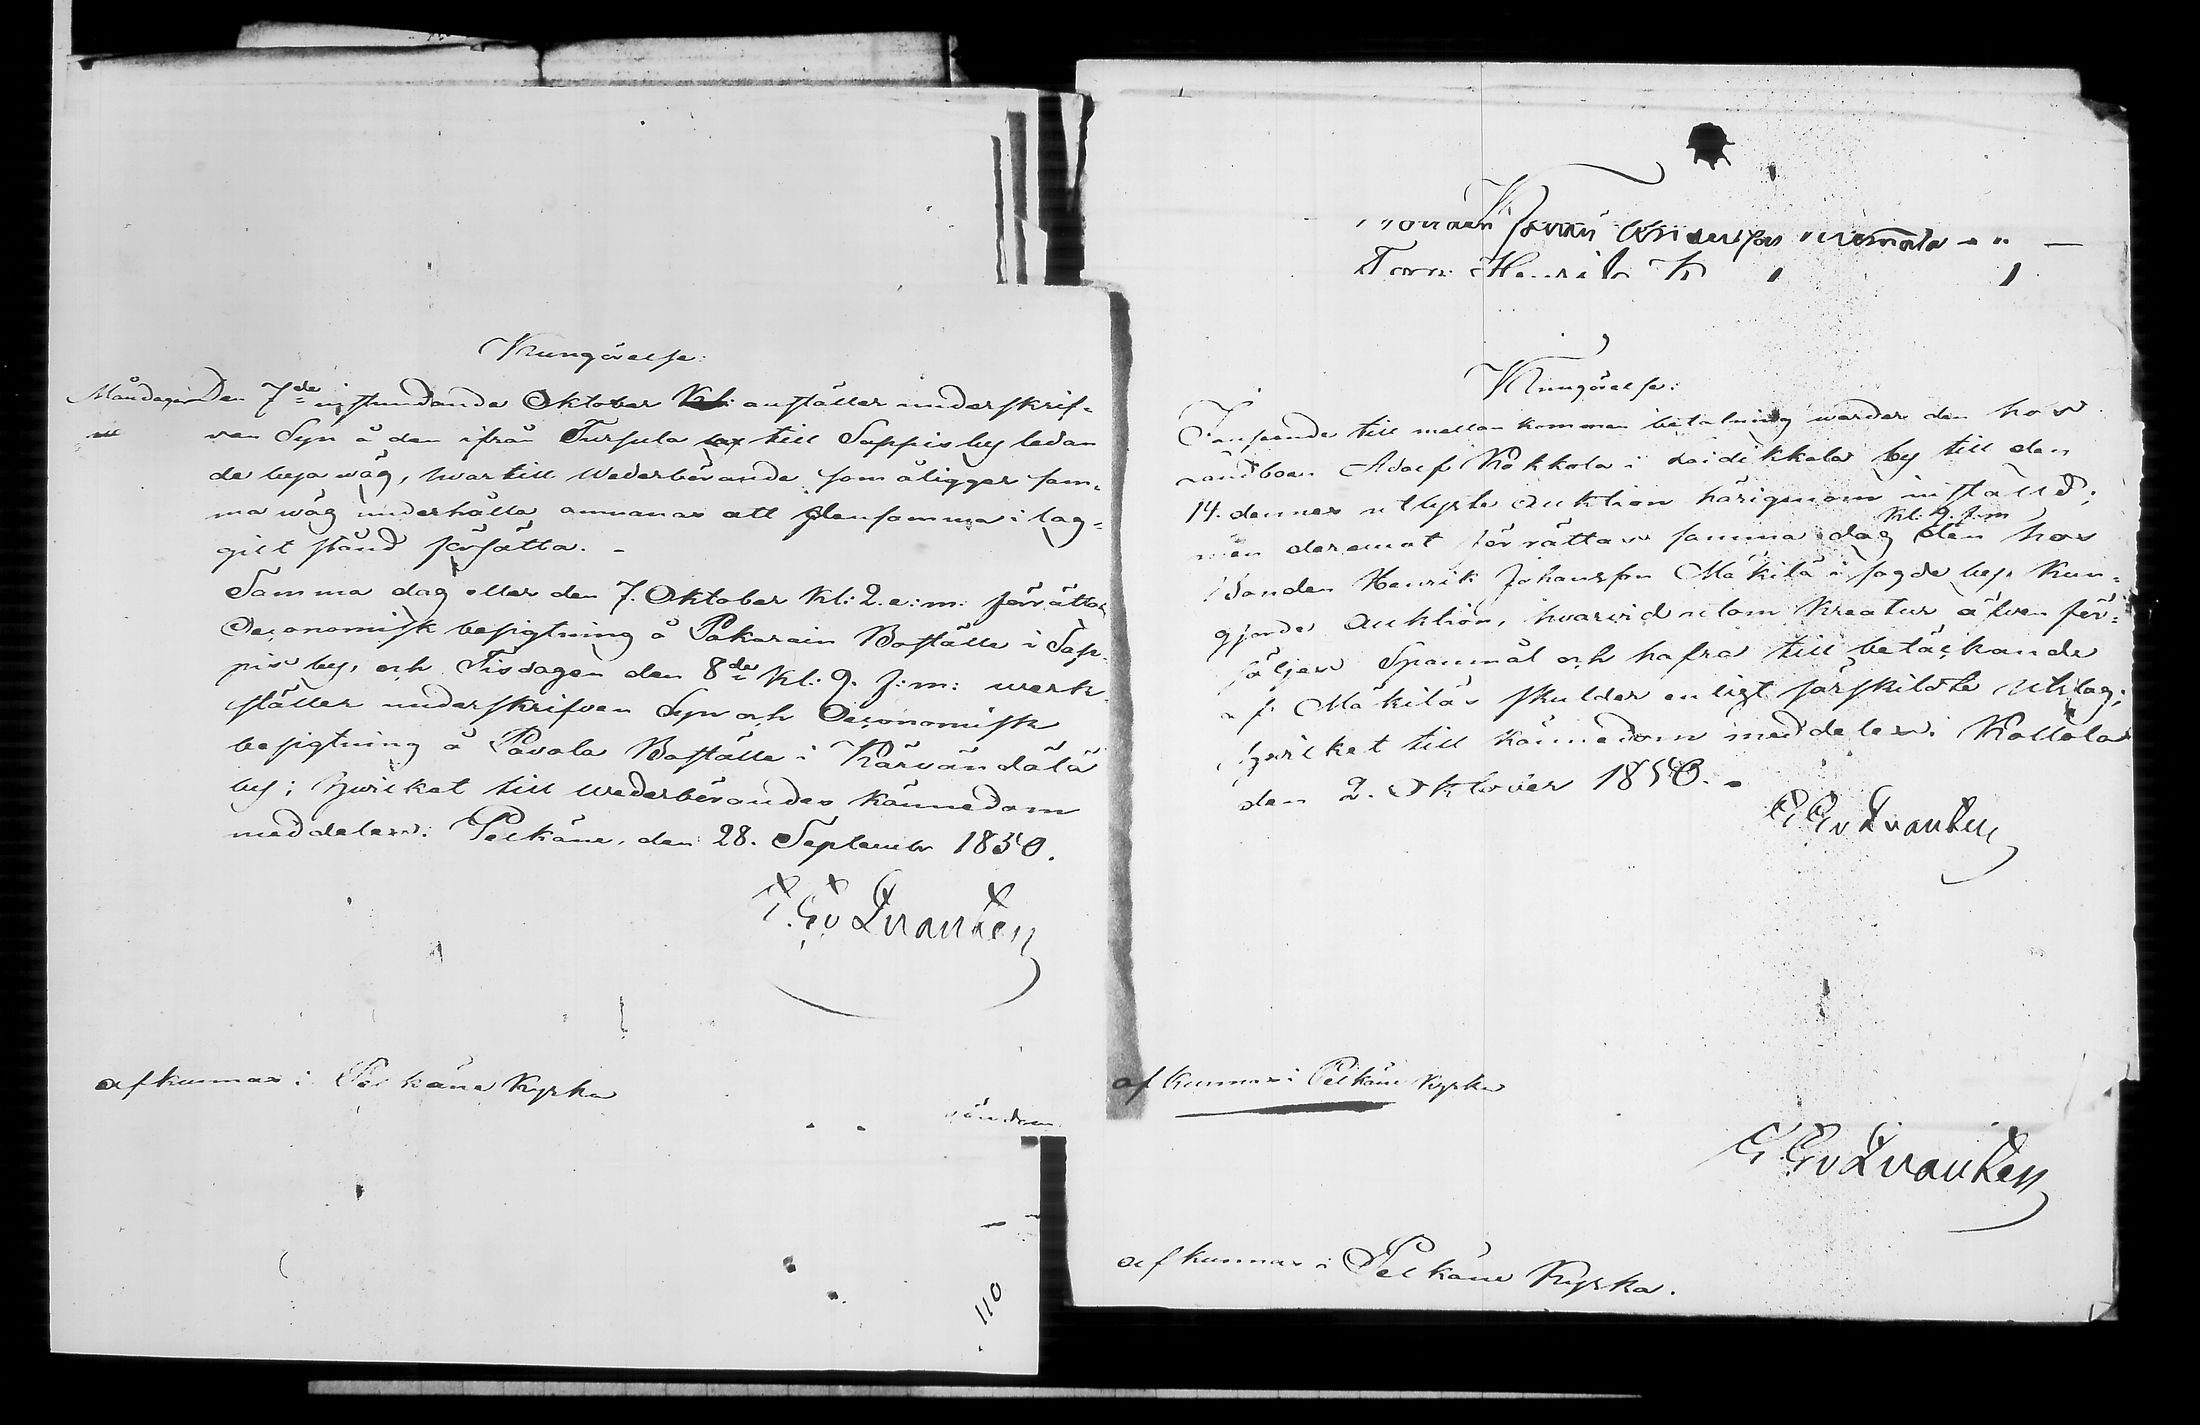 Kungörelse:
Måndagen Den 7de instundande Oktober anställer underskrif-
ven Syn å den ifrån Tursula till Sappis by ledan
de byawäg, hwartill Wederbörande, som åligger sam-
ma wäg underhålla anmanas att densamma i lag-
gilt stånd försätta. -
Samma dag eller den 7. Oktober Kl: 2. e:m: förrättas
Oeconomisk besigtning å Pakarain Boställe i Sap-
pis by, och Tisdagen den 8de Kl: 9. f:m: werk-
ställer underskrifven Syn och Oeconomisk
besigtning å Pavola Boställe i Kärvändälä
by; hwilket till wederbörandes kännedom
meddelas. Pelkäne, den 28. September 1850.
G. Gv Qvanten
afkunnas i Pelkäne Kyrka
110
Henrik
Kungörelse:
till mellankommen betalning warder den hos
Landboen Adolf Kokkola i Laidikkala by till den
14. dennes utlyste Auktion härigenom inställd;
men deremot förrättas samma dag Kl. 9. f.m den hos
Bonden Henrik Johansson Mäkilä i sagde by, kun-
gjorde Auktion, hwarvid utom Kreatur äfven för-
säljes Spanmål och hafra till betäckande
af Mäkiläs skulder enligt särskildte Utslag;
hwilket till kännedom meddelas. Kollola
den 2. Oktober 1850. -
G Gv Qvanten
afkunnas i Pelkäne Kyrka
G Gv Qvanten
afkunnas i Pelkäne Kyrka.